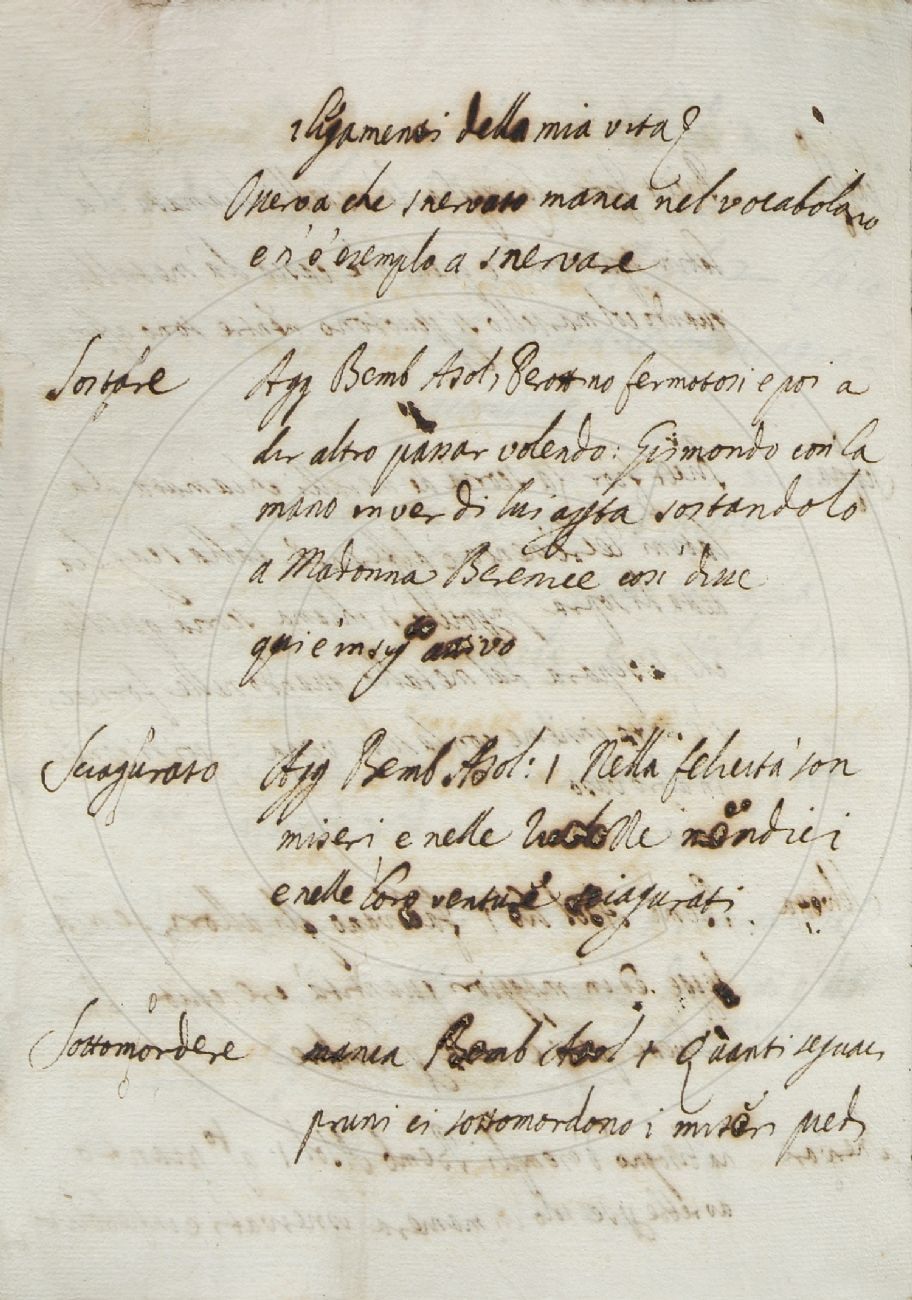 i ligamenti della mia vita?
Osserva che snervato manca nel vocabolario
e n'è esempio a snervare
Sostare Agg Bemb Asol, Perottino fermatosi e poi a
dir altro passar volendo: Gismondo con la
mano in ver di lui sostandolo
a Madonna Berenice così disse
qui è in sigto attivo
Sciagurato Agg Bemb Asol: 1 Nella felicità son
miseri e nelle mendici
e nelle loro venture sciagurati
Sottomordere manca Bemb Asol 1 Quanti seguaci
pruni ci sottomordono i miseri piedi